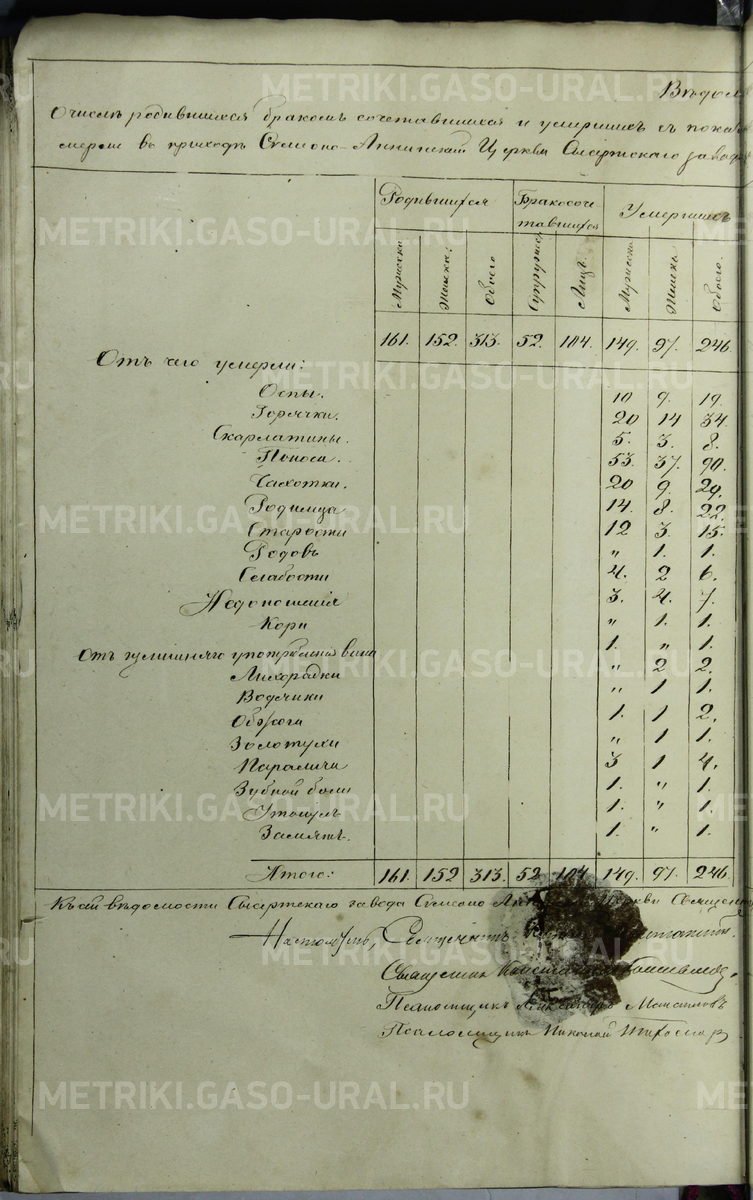 Вѣдом
О числѣ родившихся бракомъ сочетавшихся и умершихъ съ показ
смерти въ приходѣ Симеоно-Аннинской Церкви Сысертскаго завод
Родившихся Бракосоче-тавшихся Умершихъ
Мужеска Женска Обоего Супружес Лицъ Мужеска Женска Обоего.
161. 152. 313. 52. 104. 149. 97. 246.
Отъ чего умерли:
Оспы. 10 9. 19.
Горячки. 20 14 34.
Скарлатины. 5. 3. 8.
Поноса. 53. 37. 90.
Чахотки. 20 9. 29.
Родимца 14. 8. 22.
Старости 12 3. 15.
Родовъ " 1. 1.
Слабости 4. 2 6.
Недоношенія 3. 4. 7.
Кори " 1. 1.
Отъ излишняго употребленія вина 1. " 1.
Лихорадки " 2 2.
Водянки " 1 1.
Обжога 1. 1 2.
Золотухи " 1 1.
Паралича 3 1 4.
Зубной боли 1. " 1.
Утонулъ 1. " 1.
Замятъ. 1. " 1.
Итого: 161. 152 313. 52 104. 149. 97. 246.
Къ сей вѣдомости Сысертскаго завода Симеоно Ан Церкви Священно
Настоятель, Священникъ
Священникъ
Псаломщикъ Александръ
Псаломщикъ Николай
METRIKI.GASO-URAL.RU